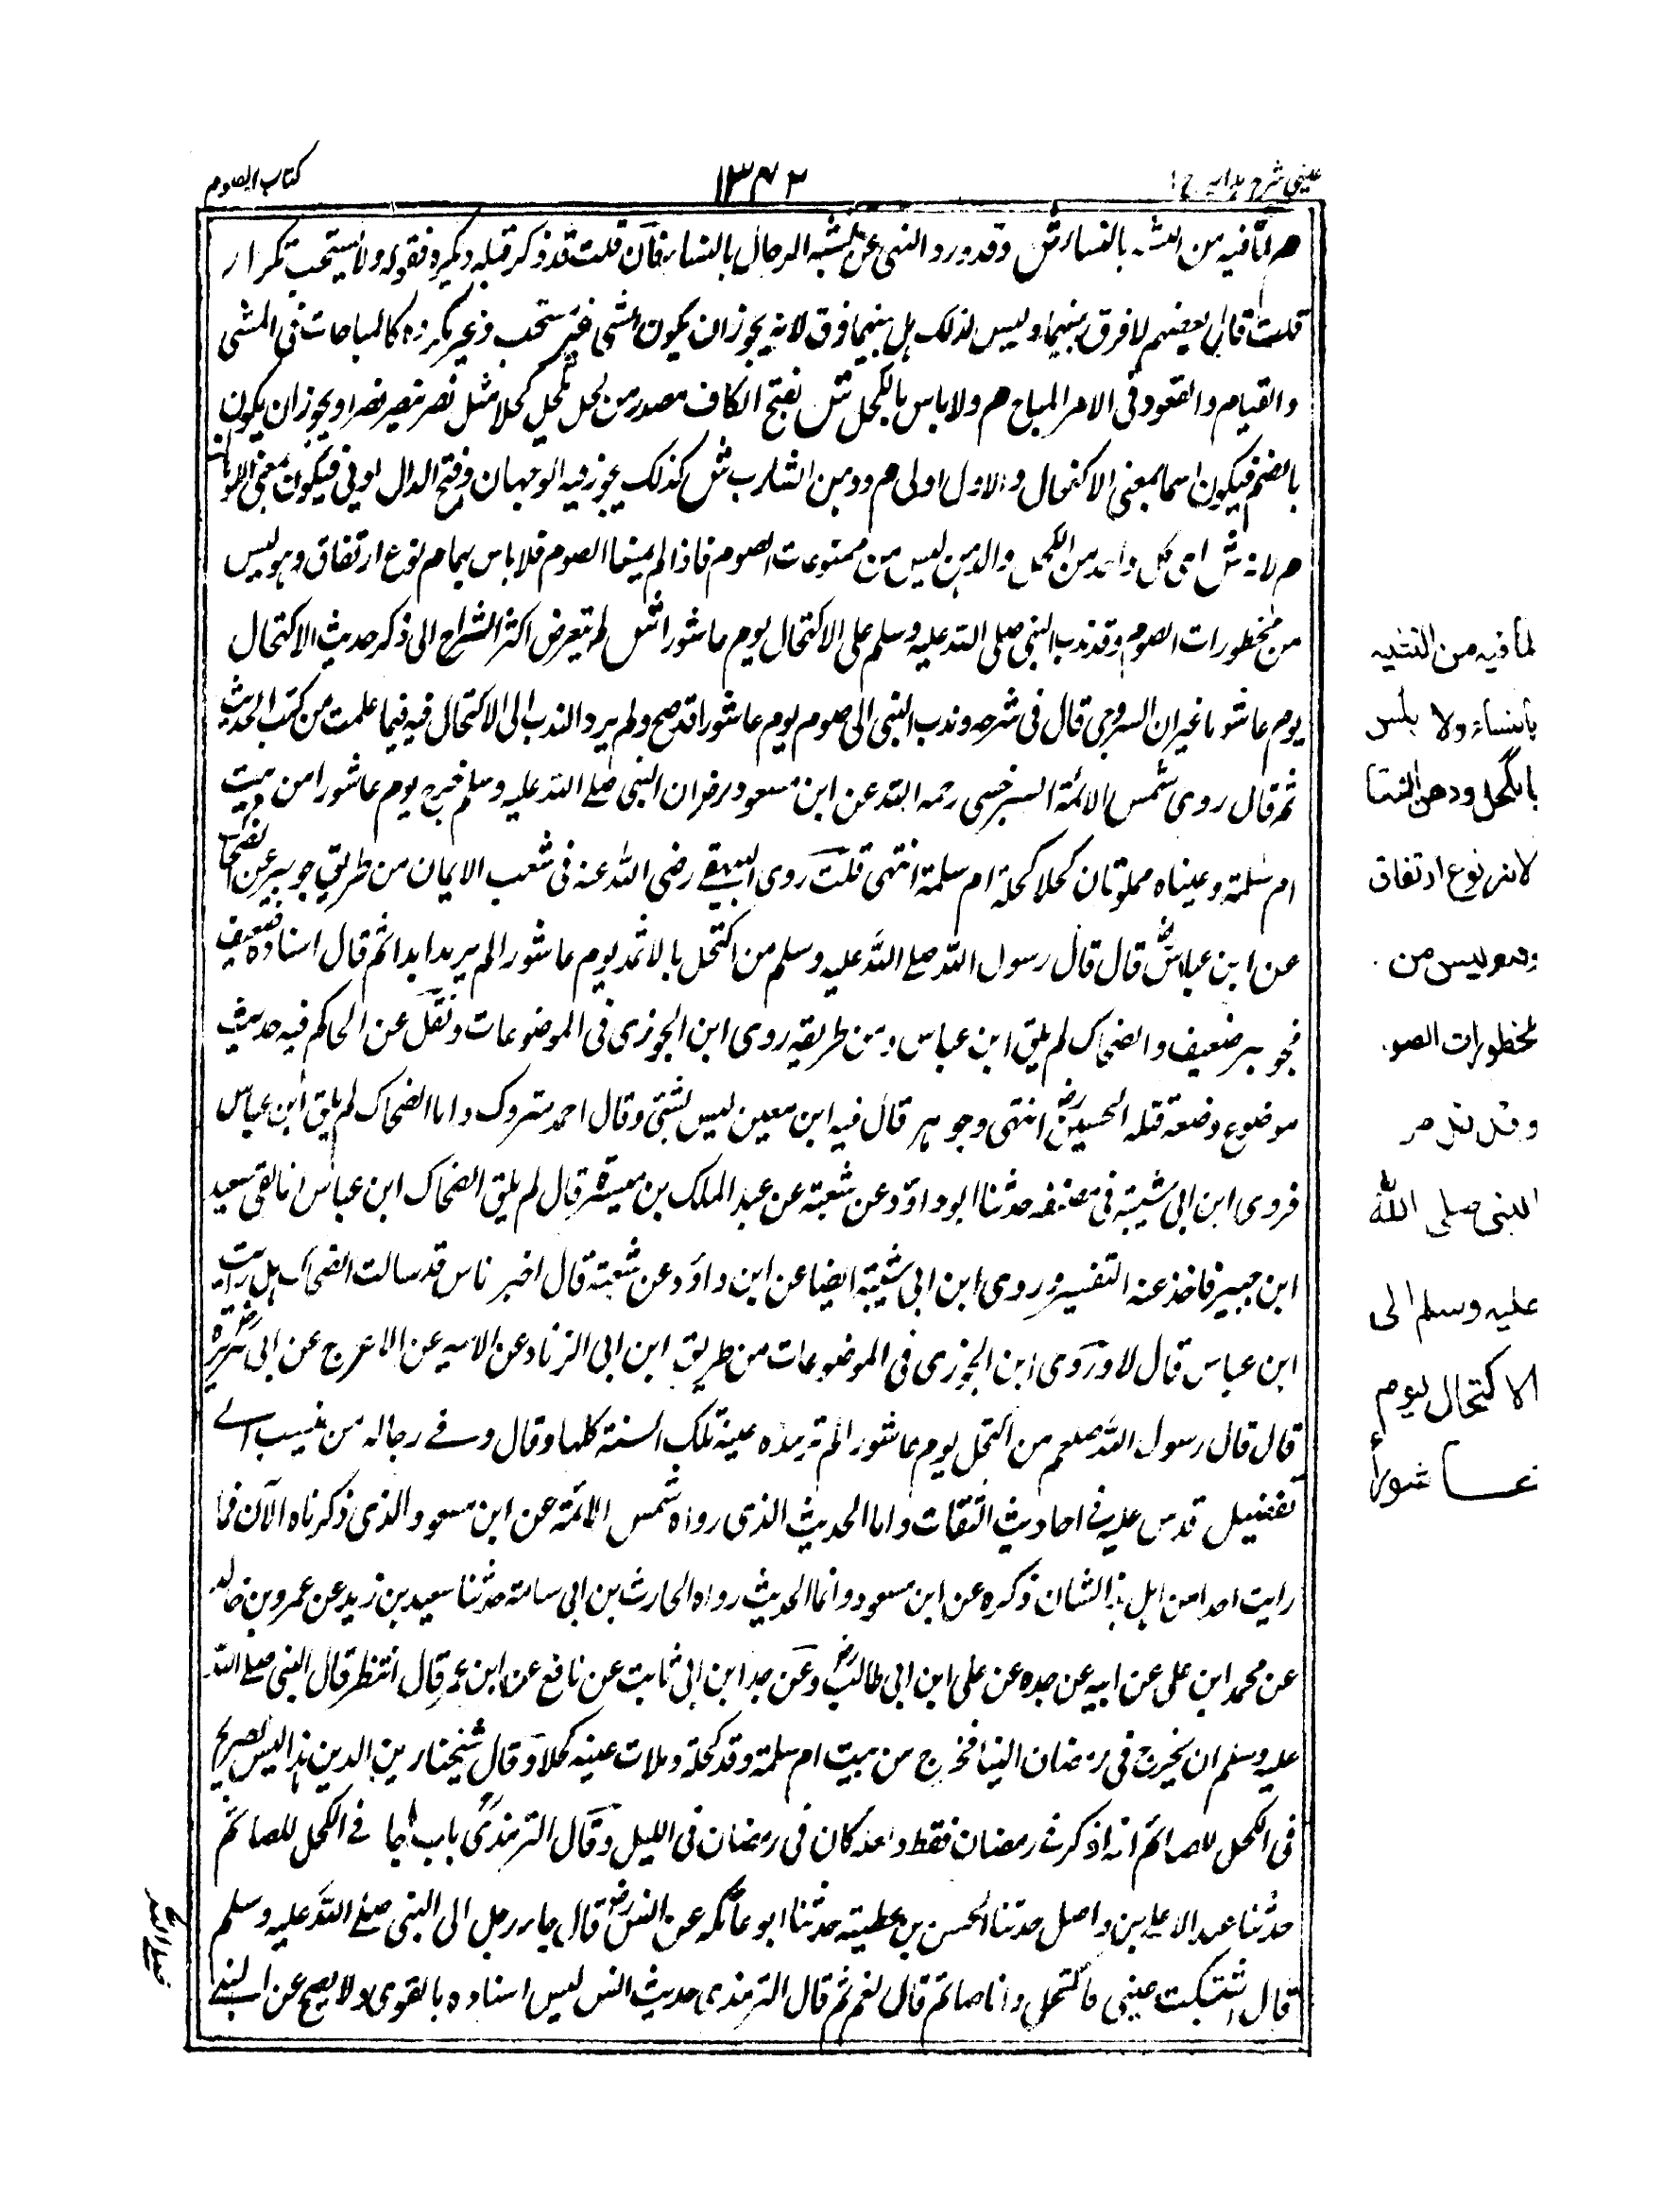 عينى شرح هدايه ج ١
١٣٤٢
كتاب الصوم
هم لما فيه من التشبه بالنساء ش وقد ورد النهى عن تشبه الرجال بالنساء فان قلت قد ذكر قبله ويكره فقوله ولا يستحب تكرار
قلت قال بعضهم لا فرق بينهما وليس كذلك بل بينهما فرق لانه يجوز ان يكون الشى غير مستحب وغير مكروه كالمباحات فى المشى
والقيام والقعود فى الامر المباح هم ولا باس بالكحل ش بفتح الكاف مصدر من كحل يكحل كحلا مثل نصر ينصر نصرا ويجوز ان يكون
بالضم فيكون اسما بمعنى الاكتحال والاول اولى هم ودهن الشارب ش كذلك يجوز فيه الوجهان وفتح الدال اولى فيكون بمعنى الادهان
هم لانه ش اى كل واحد من الكحل والدهن ليس من ممنوعات الصوم فاذا لم يمنعا الصوم فلا باس بهما هم نوع ارتفاق وهو ليس
من محظورات الصوم وقد ندب النبى صلى الله عليه وسلم على الاكتحال يوم عاشورا ش لم يتعرض اكثر الشراح الى ذكر حديث الاكتحال
يوم عاشورا غير ان السروجى قال فى شرحه وندب النبى الى صوم يوم عاشورا قد صح ولم يرد الندب الى الاكتحال فيه فيما علمت من كتب الحديث
ثم قال روى شمس الائمة السرخسى رحمه الله عن ابن مسعود رض ان النبى صلے الله عليه وسلم خرج يوم عاشورا من بيت
ام سلمة وعيناه مملوتان كحلا كحلة ام سلمة انتهى قلت روى البيهقے رضى الله عنه فى شعب الايمان من طريق جويبر عن الضحاك
عن ابن عباس رض قال قال رسول الله صلے الله عليه وسلم من اكتحل بالاثمد يوم عاشورا لم يرمد ابدا ثم قال اسناده ضعيف
فجويبر ضعيف والضحاك لم يلق ابن عباس ومن طريقه روى ابن الجوزى فى الموضوعات ونقل عن الحاكم فيه حديث
موضوع وضعه قتله الحسين رض انتهى وجوبير قال فيه ابن معين ليس بشئ وقال احمد متروك واما الضحاك لم يلق ابن عباس
فروى ابن ابى شيبة فى مصنفه حدثنا ابو داؤد عن شعبة عن عبد الملك بن ميسرة قال لم يلق الضحاك ابن عباس انما لقى سعيد
ابن جبير فاخذ عنه التفسير وروى ابن ابى شيبة ايضا عن ابن داؤد عن شعبة قال اخبر ناس قد سالت الضحاك هل رايت
ابن عباس قال لا وروى ابن الجوزى فى الموضوعات من طريق ابن ابى الزناد عن ابيه عن الاعرج عن ابى هريرة رض
قال قال رسول الله صلعم من اكتحل يوم عاشورا لم ترمد عينه تلك السنة كلها وقال وفے رجاله من ينسب الے
تغفيل قدس عليه فے احاديث الثقات واما الحديث الذى رواه شمس الائمة عن ابن مسعود الذى ذكرناه الآن فما
رايت احدا من اهل هذا الشان ذكره عن ابن مسعود وانما الحديث رواه الحارث بن ابى سامة حدثنا سعيد بن زيد عن عمرو بن خالد
عن محمد ابن على عن ابيه عن جده عن على ابن ابى طالب رض وعن حد ابن ابى ثابت عن نافع عن ابن عمر قال انتظر قال النبى صلے الله
عليه وسلم ان يخرج فى رمضان الينا فخرج من بيت ام سلمة وقد كحلة وملات عينه كحلا وقال شيخنا زين الدين هذا ليس بصريح
فى الكحل للصائم انه اذ ذكر فے رمضان فقط ولعله كان فى رمضان فى الليل وقال الترمذى باب ما جا فے الكحل للصائم
حدثنا عبد الاعلے بن واصل حدثنا الحسن بن عطية حدثنا ابو عاتكه عن انس رض قال جاء رجل الى النبى صلے الله عليه وسلم
قال اشتكت عينى فاكتحل وانا صائم قال نعم ثم قال الترمذى حديث انس ليس اسناده بالقوى ولا يصح عن النبے
صلى الله
لما فيه من التشبه
بالنساء ولا بلس
بالكحل ودهن الشا
لانه نوع ارتفاق
وهو ليس من
محظورات الصو
وقد ند
النبى صلى الله
عليه وسلم الى
الاكتحال يوم
عاشوراء